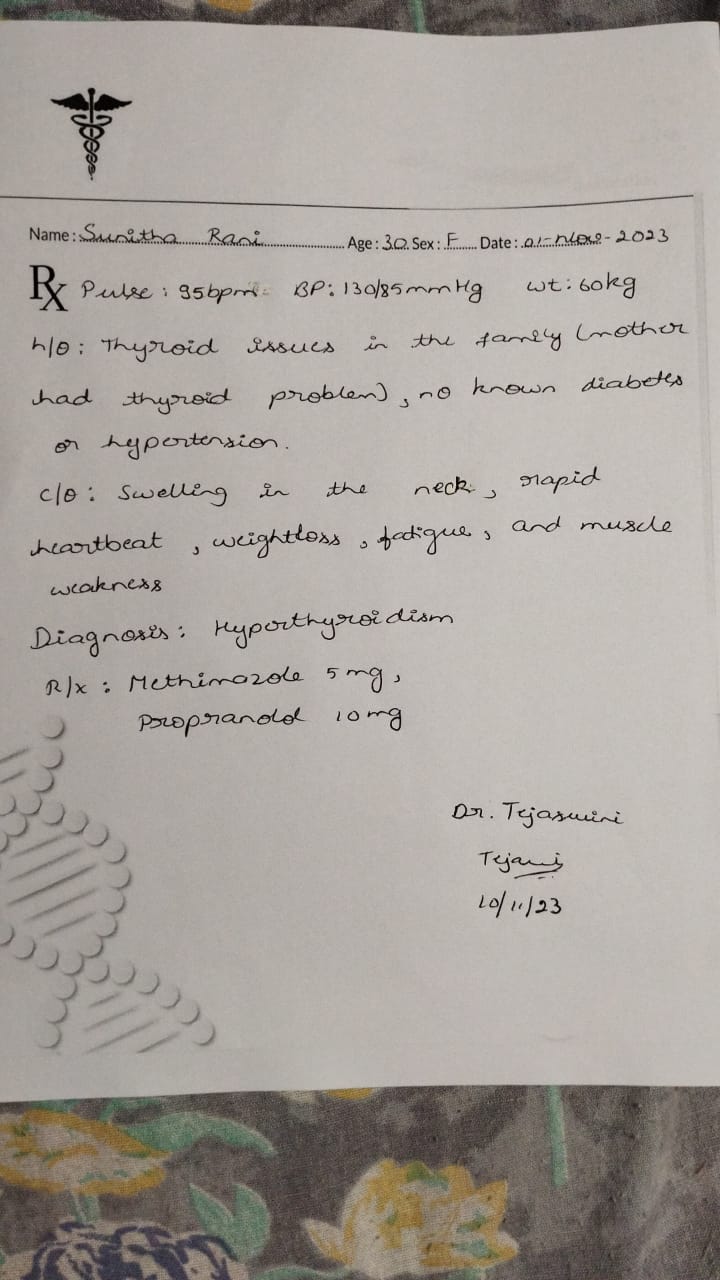 Name: Sunitha Rani Age: 30 Sex: F Date: 01-Nov-2023
Rx Pulse: 95bpm BP: 130/85mmHg wt: 60kg
h/o: Thyroid issues in the family (mother
had thyroid problem), no known diabetes
or hypertension.
c/o: Swelling in the neck, rapid
heartbeat, weightloss, fatigue, and muscle
weakness
Diagnosis: Hyperthyroidism
R/x: Methimazole 5mg,
Propranolol 10mg
Dr. Tejaswini
10/11/23